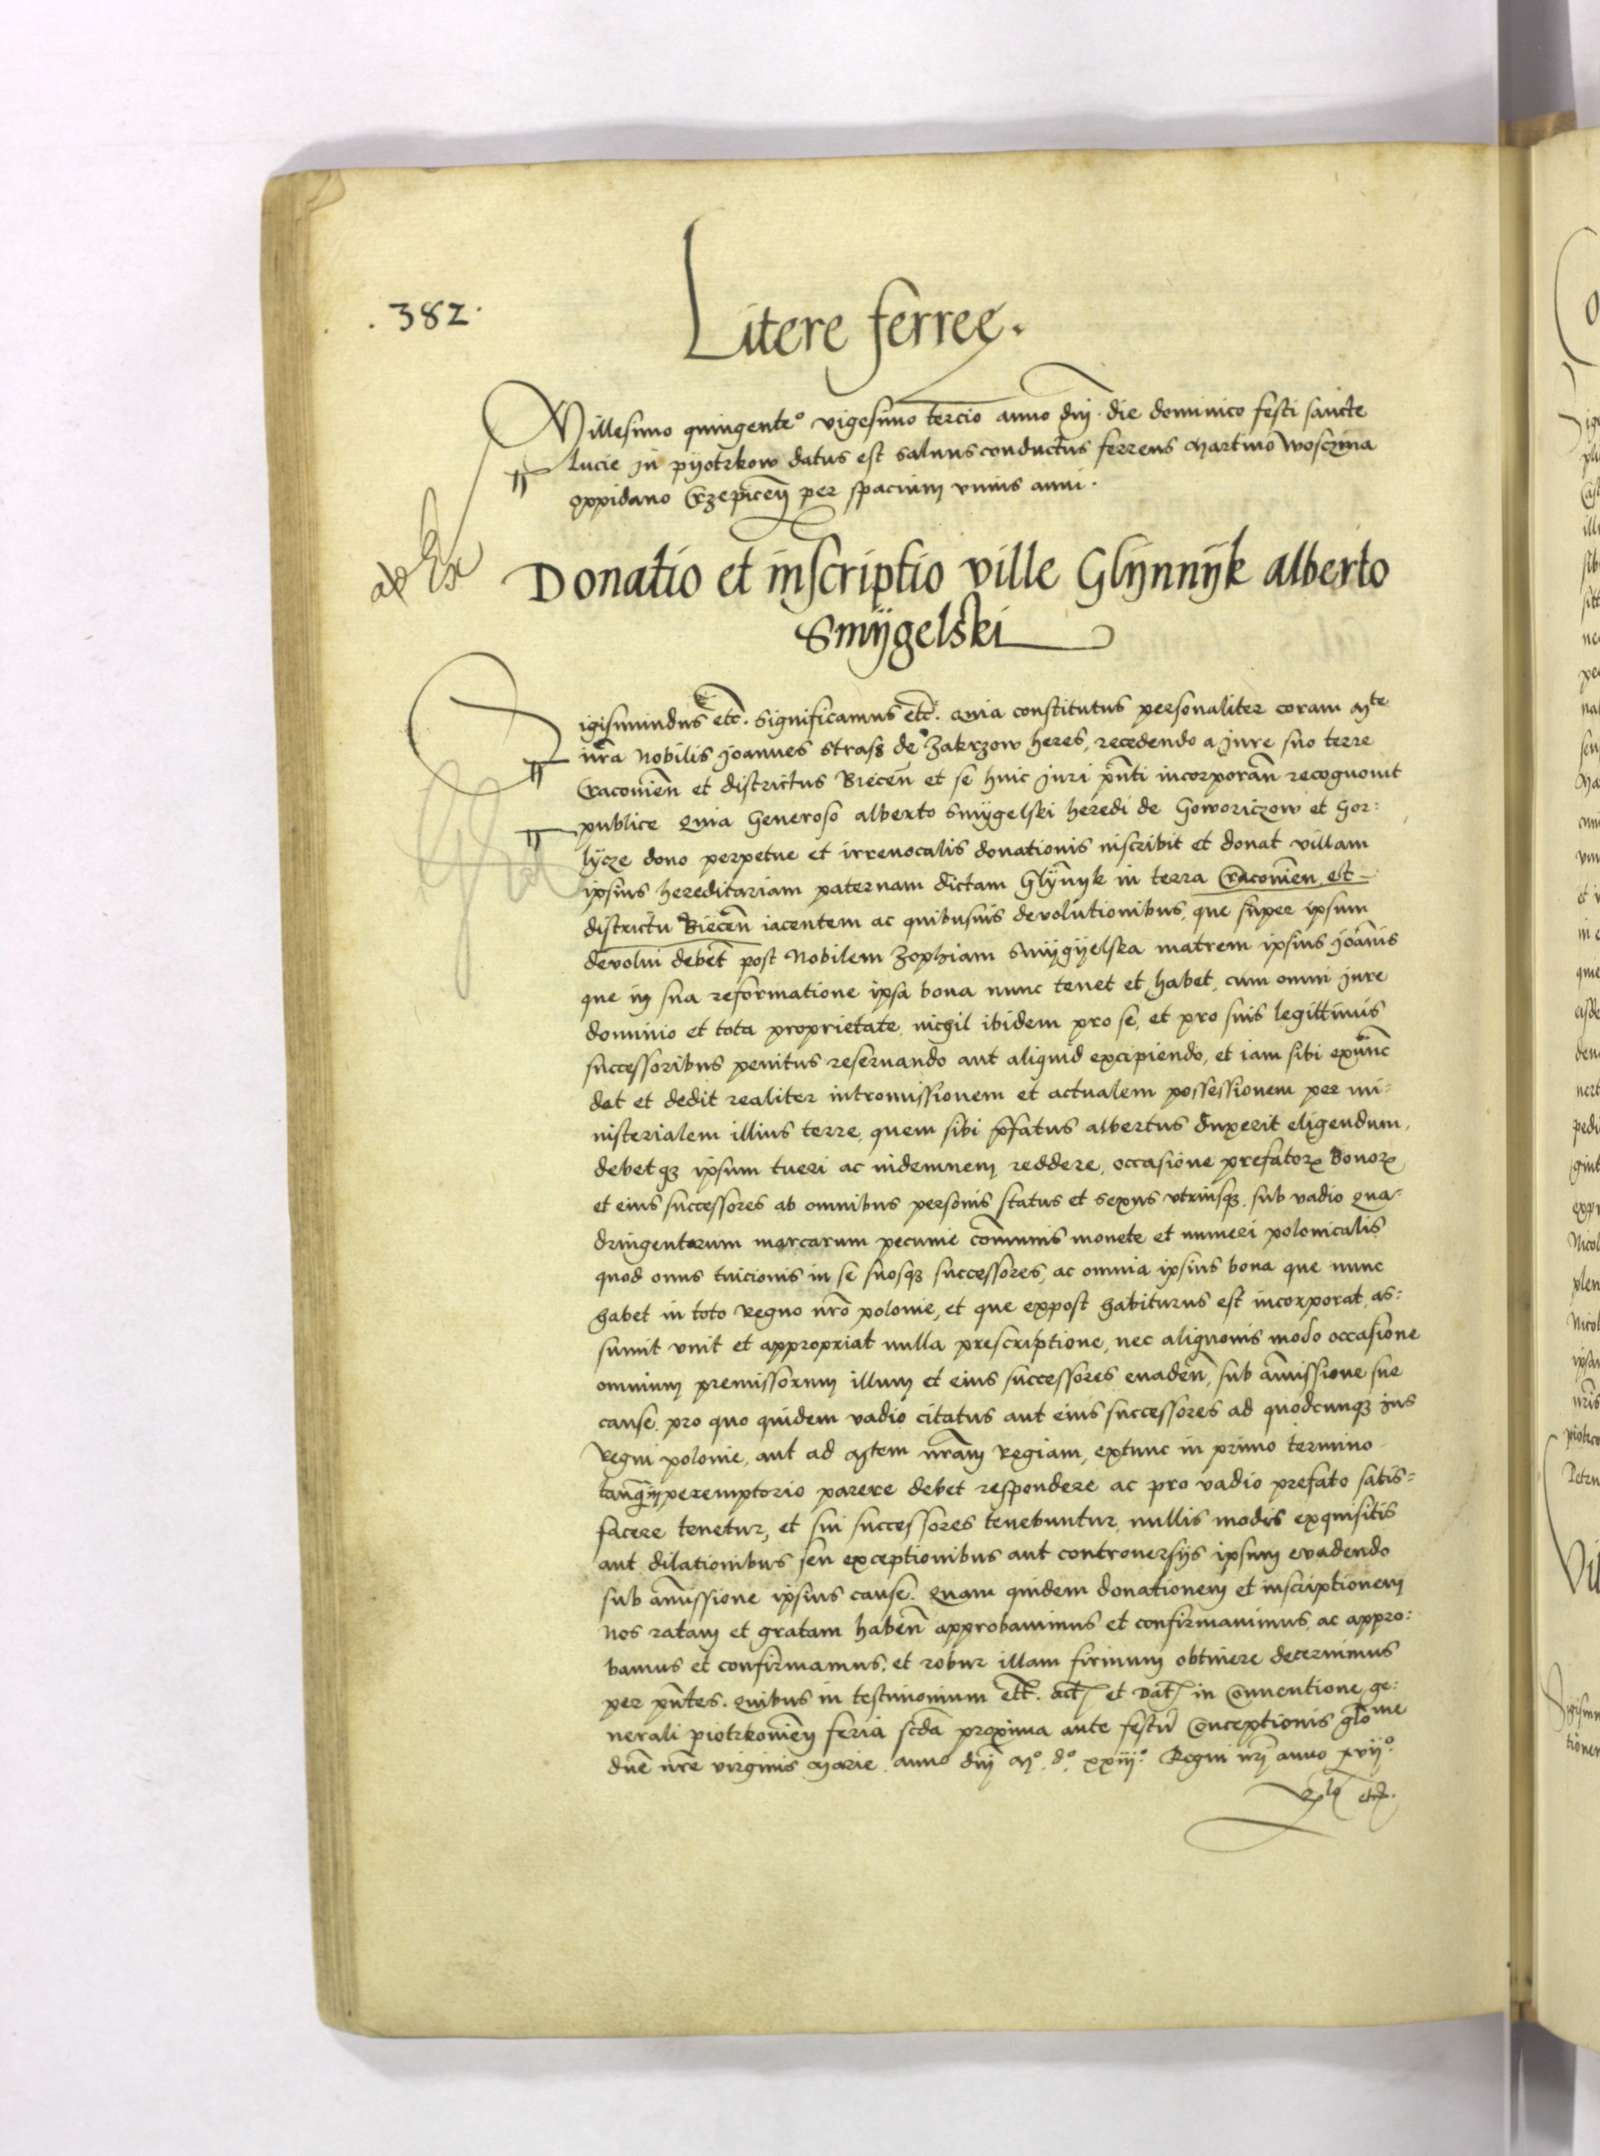 .382.
Litere ferree.
Millesimo quingente° vigesimo tercio anno dnj. die dominico festi sancte
Lucie in pyotrkow datus est salvus conductus ferreus Martino Wosczina
oppidano Crzepiceñ per spacium unius anni.
Donatio et inscriptio ville Glynnyk Alberto
Smygelski
Sigismundus etc. Significamus etc. Quia constitutus personaliter coram Mte
nra Nobilis Joannes Strasz de Zakrzow heres, recedendo a jure suo terre
Cracovieñ et districtus Bieceñ et se huic juri pnti incorporañ recognovit
publice Quia Generoso Alberto Smygelski heredi de Goworiczow et Gor:
lycze dono perpetue et irrevocalis donationis inscribit et donat villam
ipsius hereditariam paternam dictam Glynnyk in terra Cracovieñ et
districtu Bieceñ iacentem ac quibusvis devolutionibus, que super ipsum
devolvi debet post Nobilem Zophiam Smygyelska matrem ipsius Joannis
que in sua reformatione ipsa bona nunc tenet et habet, cum omni jure
dominio et tota proprietate nichil ibidem pro se, et pro suis legittimis
successoribus penitus reservando aut aliquid excipiendo, et iam sibi exnunc
dat et dedit realiter intromissionem et actualem possessionem per mi-
nisterialem illius terre, quem sibi pfatus Albertus duxerit eligendum,
debetqz ipsum tueri ac indemnem reddere, occasione prefatorz bonorz
et eius successores ab omnibus personis status et sexus utriusqz sub vadio qua-
dringentarum marcarum pecunie comunis monete et numeri polonicalis
quod onus tuicionis in se suosqz successores, ac omnia ipsius bona que nunc
habet in toto Regno nro polonie, et que expost habiturus est incorporat, as:
sumit unit et appropriat nulla prescriptione, nec aliquovis modo occasione
omnium premissorum illum et eius successores evadeñ, sub amissione sue
cause. pro quo quidem vadio citatus aut eius successores ad quodcunqz jus
Regni polonie, aut ad Mtem nram Regiam, extunc in primo termino
tanqm peremptorio parere debet respondere ac pro vadio prefato satis-
facere tenetur, et sui successores tenebuntur, nullis modis exquisitis
aut dilationibus seu exceptionibus aut controversijs ipsum evadendo
sub amissione ipsius cause. Quam quidem donationem et inscriptionem
Nos ratam et gratam habeñ approbavimus et confirmavimus, ac appro:
bamus et confirmamus, et robur illam firmum obtinere decernimus
per pntes. Quibus in testimonium etc. Act et Dat in Conventione ge:
nerali piotrkovieñ feria scda proxima ante festu Conceptionis glome
dne nre virginis Marie anno dnj M°. d°. xxiij°. Regni nrj anno xvij°.